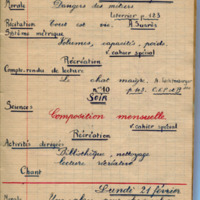 Morale Dangers des métiers
Lemercier p. 133
Récitation Tout est vie. A. Suarès
Système métrique
Volumes, capacités, poids.
v. cahier spécial
Récréation
Compte-rendu de lecture
Le chat maigre.
n° 10 p. 107. C.E.P.
Soir
Sciences
Composition mensuelle
v. cahier spécial
Récréation
Activités dirigées
Bibliothèque, nettoyage
lecture récréative
Chant
Lundi 21 février
Morale